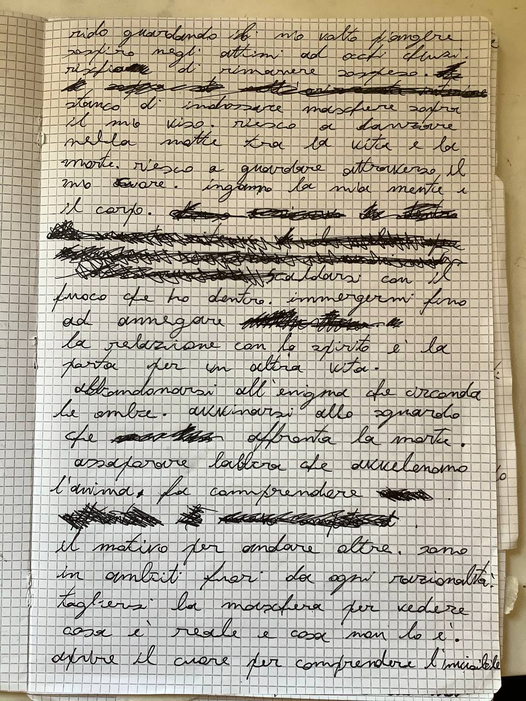 rido guardando il mo volto piangere
sospiro negli attimi ad occhi chiusi.
di rimanere sospeso.
stanco di indossare maschere sopra
il mo viso. riesco a danzare
nella notte tra la vita e la
morte. riesco a guardare attraverso il
mo cuore. inganno la mia mente e
il corpo.
scaldarsi con il
fuoco che ho dentro. immergermi fino
ad annegare
la relazione con lo spirito è la
porta per un altra vita.
abbandonarsi all'enigma che circonda
le ombre. avvicinarsi allo sguardo
che affronta la morte.
assaporare labbra che avvelenano
l'anima, fa comprendere
il motivo per andare oltre. sono
in ambiti fuori da ogni razionalità.
togliersi la maschera per vedere
cosa è reale e cosa non lo è.
aprire il cuore per comprendere l'invisibile